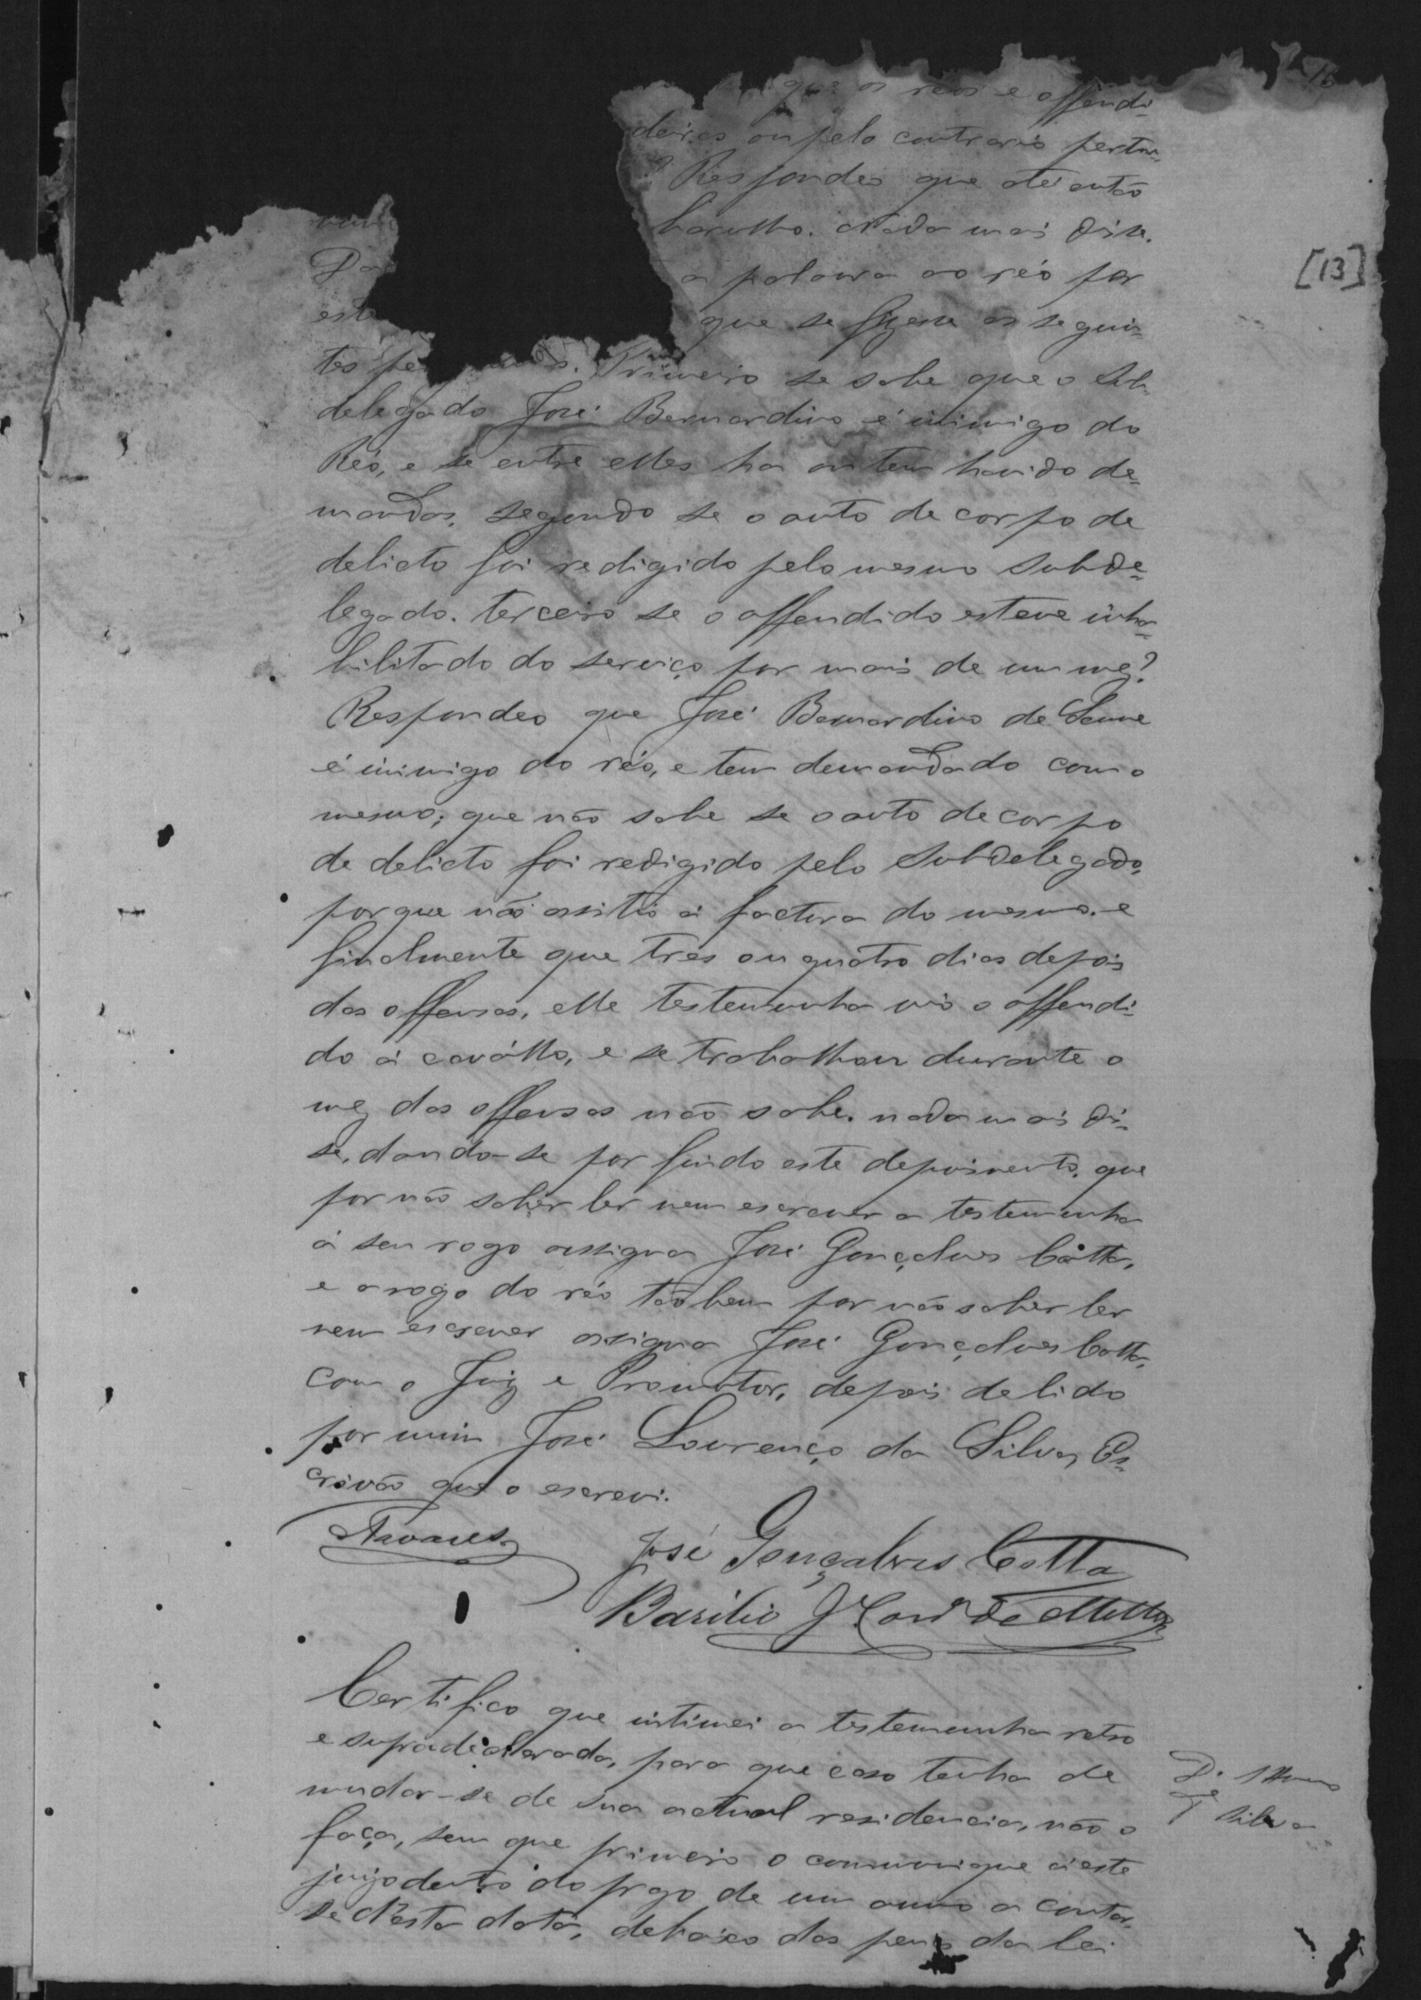 que os réos e offendi-
deiros ou pelo contrario pertur-
? Respondeo que até então
barulho. Nada mais disse.
Da a palavra ao réo por
este que se fizesse as seguin-
tes Primeiro se sabe que o Sub-
delegado José Bernardino é inimigo do
Réo, e se entre elles ha ou tem havido de-
mandas, segundo se o auto de corpo de
delicto foi redigido pelo mesmo Subde-
legado. terceiro se o offendido esteve inha-
bilitado do serviço por mais de um mez?
Respondeo que José Bernardino de
é inimigo do réo, e tem demandado com o
mesmo; que não sabe se o auto de corpo
de delicto foi redigido pelo Subdelegado,
porque não assitio á factura do mesmo. e
finalmente que tres ou quatro dias depois
das offensas, elle testemunha vio o offendi-
do á cavallo, e se trabalhou durante o
mez das offensas não sabe. nada mais di-
se, dando-se por findo este depoimento. que
por não saber ler nem escrever a testemunha
á seu rogo assigna José Gonçalves Cotta,
e a rogo do réo tãobem por não saber ler
nem escrever assigna José Gonçalves Cotta,
com o Juiz e Promotor, depois de lido
por mim José Lourenço da Silva, Es-
crivão que o escrevi.
Tavares
José Gonçalves Cotta
Basilio de Mello
Certifico que intimei a testemunha retro
e supradeclarada, para que caso tenha de
mudar-se de sua actual residencia, não o
faça, sem que primeiro o communique á este
juizo dentro do prazo de um anno a contar-
se desta data, debaixo das penas da lei
Silva
[13]